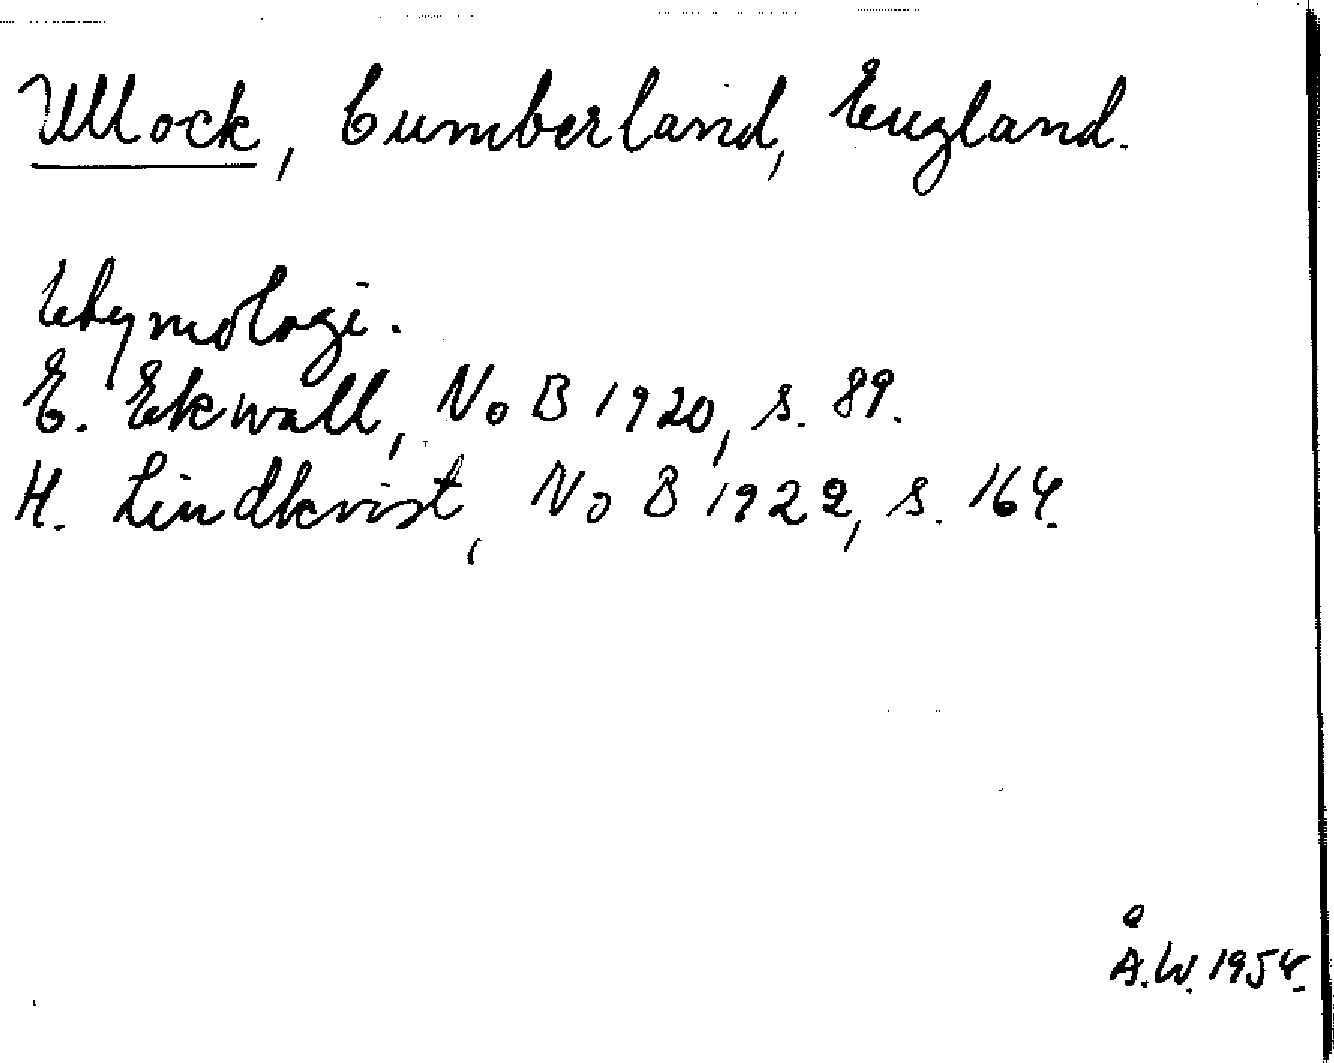 Ullock, Cumberland, England.
Etymologi.
E. Ekwall, NoB 1920, s. 89.
H. Lindkvist, NoB 1922, s. 164.
Å.W. 1954.